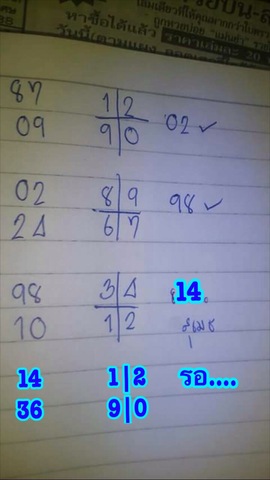 หาซื้อได้แล้ว
87 1|2
09 9|0 02 ✓
02 8|9
24 6|7 98 ✓
98 3|4 14
10 1|2
14 1|2 รอ....
36 9|0